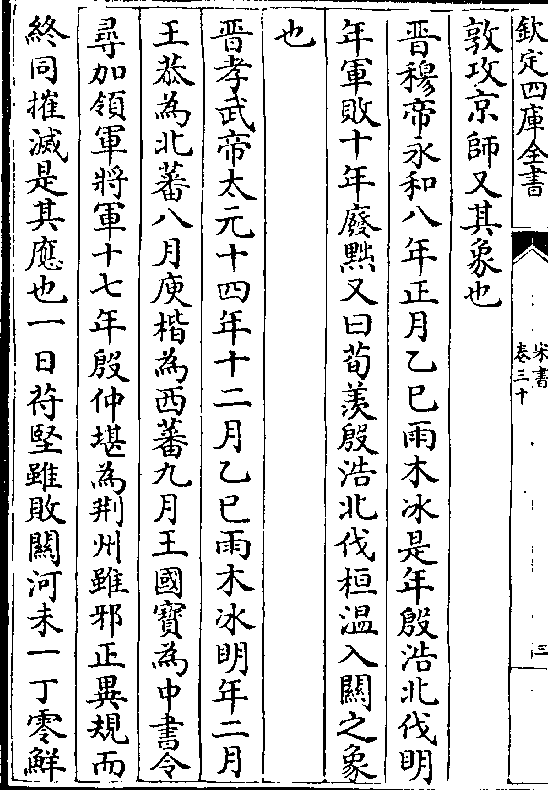 欽定四庫全書
宋書
卷三十
三
敦攻京師又其象也
晉穆帝永和八年正月乙巳雨木冰是年殷浩北伐明
年軍敗十年廢黜又曰荀羨殷浩北伐桓溫入關之象
也
晉孝武帝太元十四年十二月乙巳雨木冰明年二月
王恭為北蕃八月庾楷為西蕃九月王國寶為中書令
尋加領軍將軍十七年殷仲堪為荆州雖邪正異規而
終同摧滅是其應也一曰苻堅雖敗關河未一丁零鮮